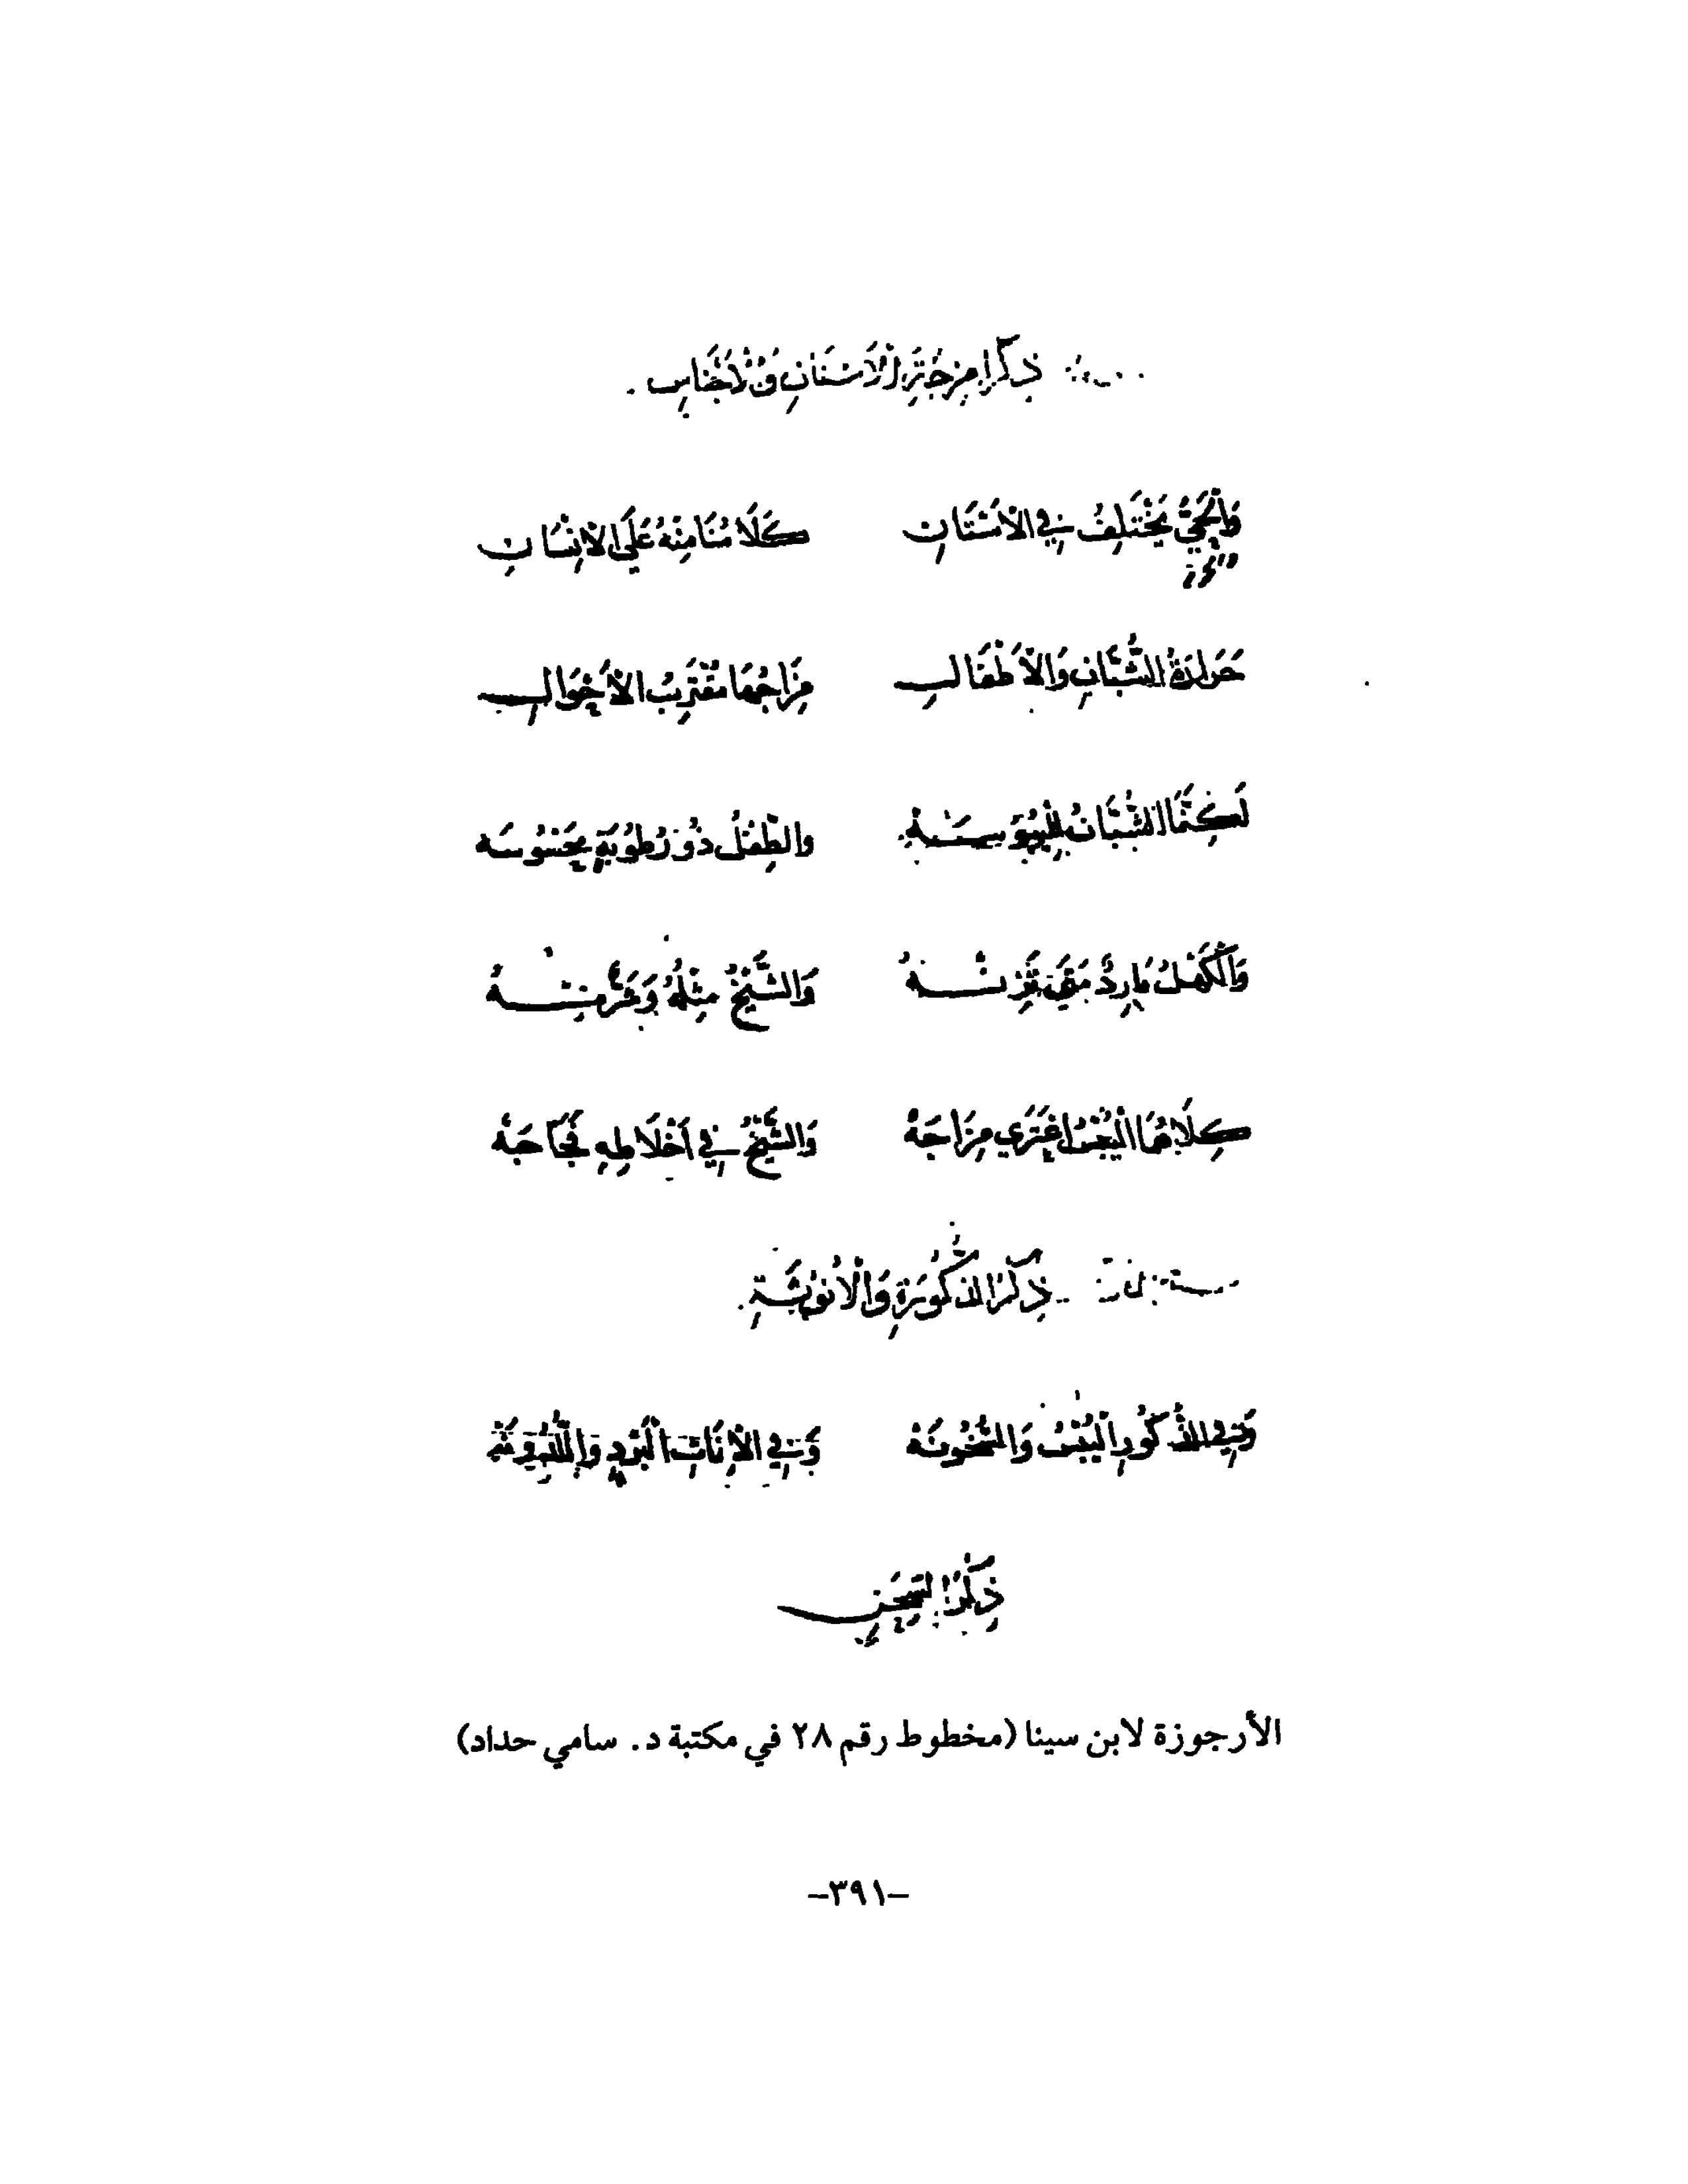 ذِكْرُ امْزِجَةِ الْأَسْنَانِ وَالْأَجْنَاسِ
يَخْتَلِفُ فِي الْأَسْنَانِ كَلَامُنَا مِنْهُ عَلَى الْإِنْسَانِ
حَرَارَةُ الشُّبَّانِ وَالْأَطْفَالِ مِزَاجُهَا مُقْتَرِبُ الْأَحْوَالِ
لَكِنَّمَا الشُّبَّانُ لِلْيُبُوسَةِ وَالطِّفْلُ ذُو رُطُوبَةٍ مَحْسُوسَه
وَالْكَهْلُ بَارِدٌ وَالشَّيْخُ مِثْلُهُ
كِلَاهُمَا الْيُبْسُ اعْتَرَى مِزَاجَهْ وَالشَّيْخُ فِي أَخْلَاطِهِ فَجَاجَهْ
ذِكْرُ الذُّكُورَةِ وَالْأُنُوثَةِ
وَفِي الذُّكُورِ الْيُبْسُ وَالسُّخُونَهْ وَفِي الْإِنَاثِ الْبَرْدُ وَاللُّدُونَهْ
ذِكْرُ السِّحَنِ
الأرجوزة لابن سينا (مخطوط رقم ٢٨ في مكتبة د. سامي حداد)
-٣٩١-